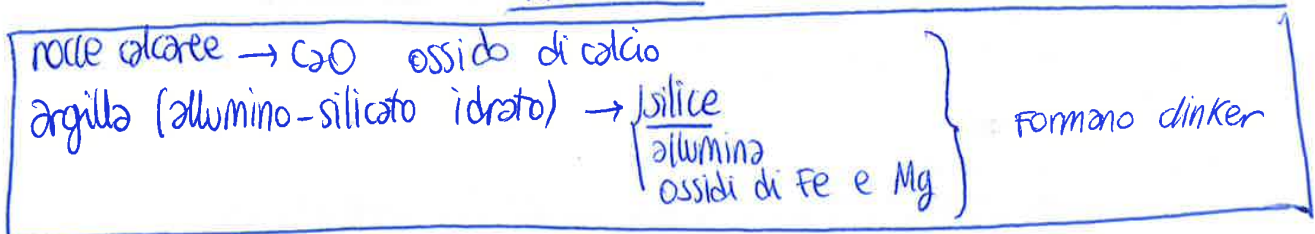 rocce calcaree → CaO ossido di calcio
argilla (allumino-silicato idrato) → silice
allumina
ossidi di Fe e Mg
Formano clinker